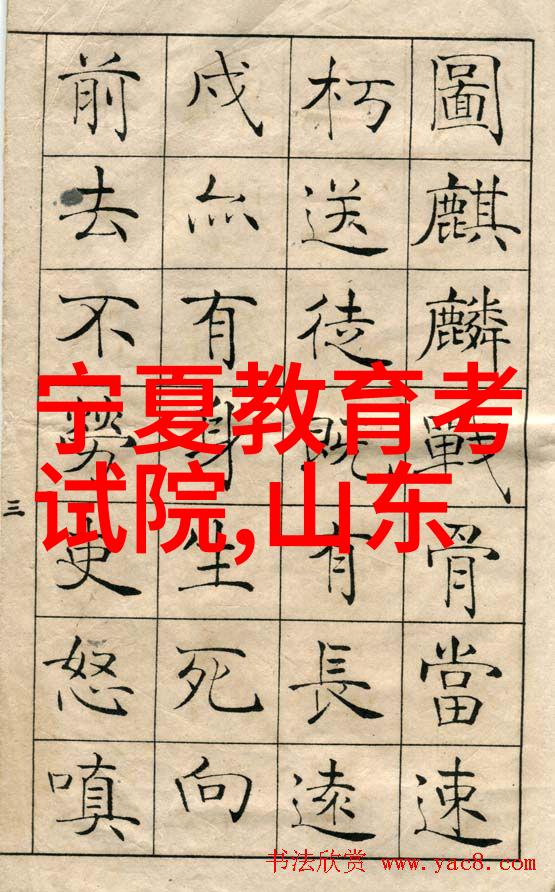 圖麒麟戰骨當速
朽送徒既有長遠
戍亦有身生死向
前去不勞吏怒嗔
三
宁夏教育考
试院,山东
书法欣赏 www.yac8.com